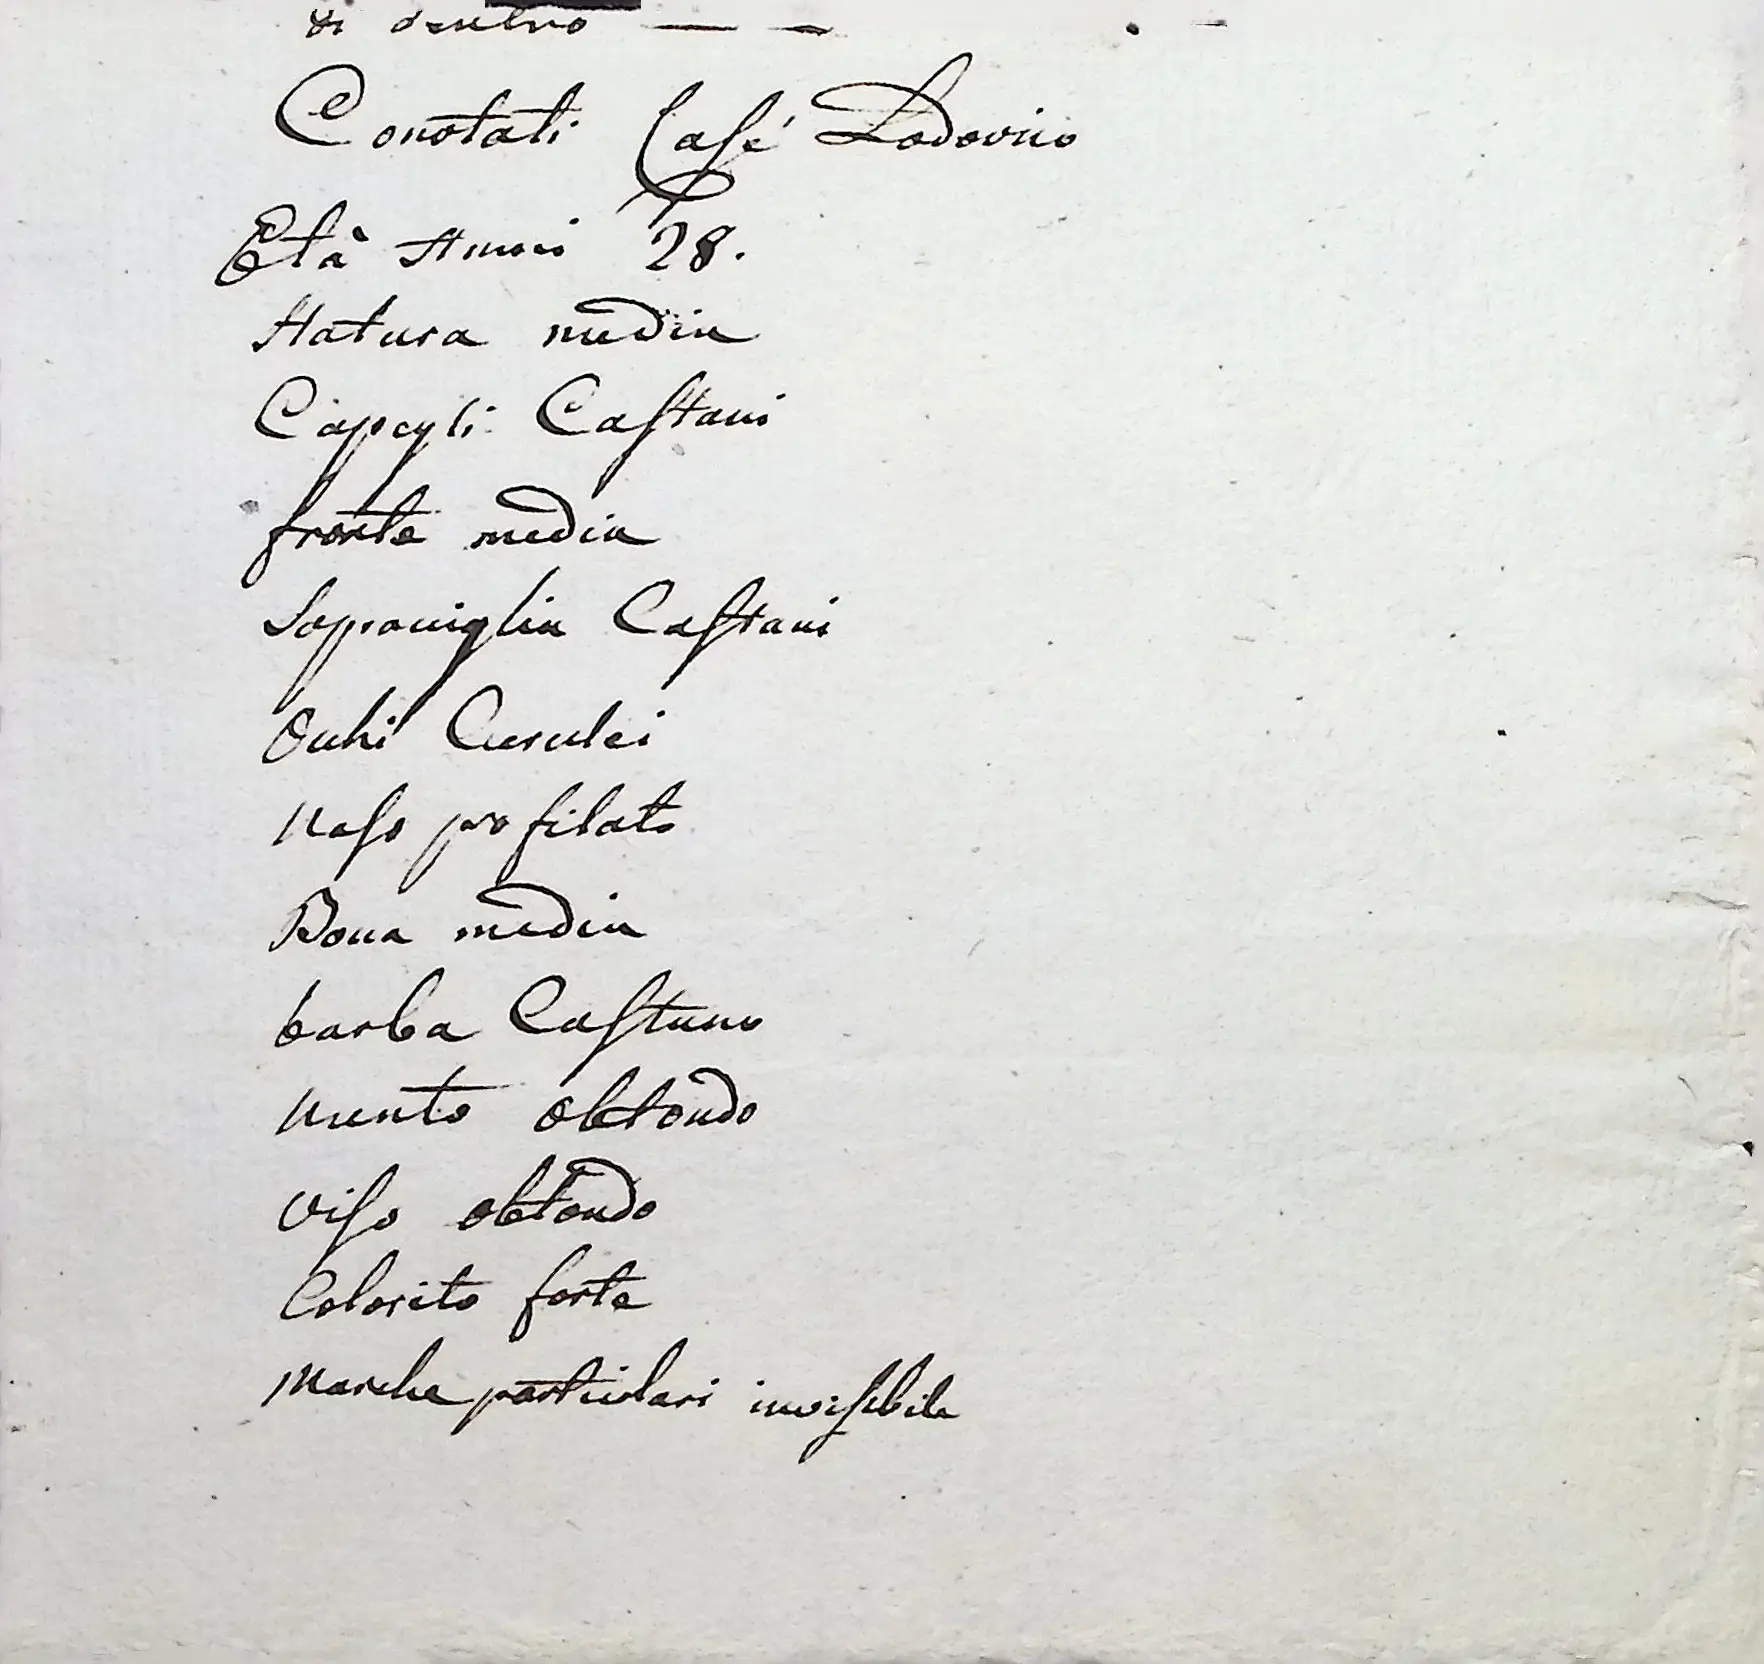 di dentro — —
Conotati Casé Lodovico
Età Anni 28.
Statura media
Capegli Castani
fronte media
Sopraciglia Castani
Ochi Cerulei
Naso profilato
Boca media
barba Castano
Mento obtondo
Viso obtondo
Colorito forte
Marche particolari invisibile